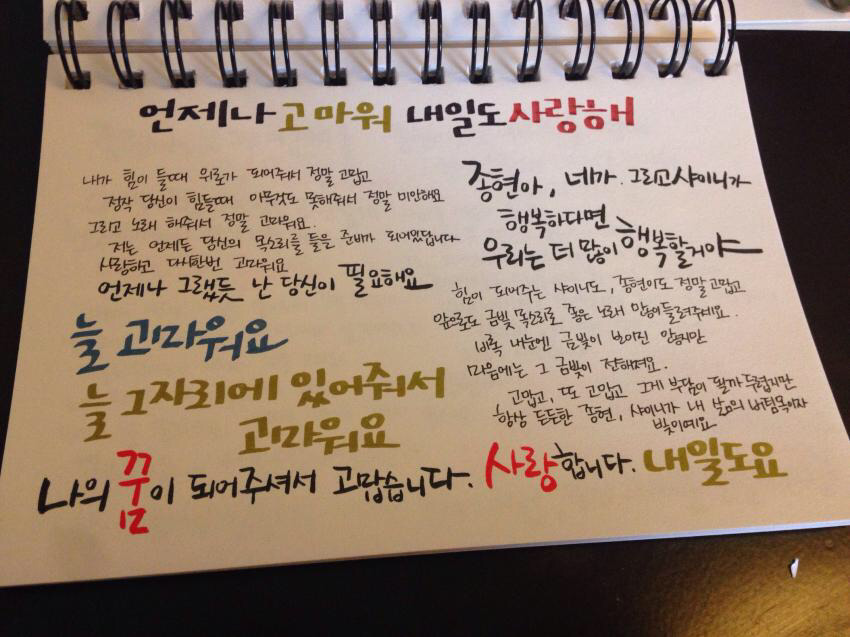 언제나 고마워 내일도 사랑해
내가 힘이 들때 위로가 되어줘서 정말 고맙고
정작 당신이 힘들때 아무것도 못해줘서 정말 미안해요
그리고 노래 해줘서 정말 고마워요.
저는 언제든 당신의 목소리를 들을 준비가 되어있답니다
사랑하고 다시한번 고마워요
언제나 그랬듯 난 당신이 필요해요
늘 고마워요
늘 그자리에 있어줘서
고마워요
종현아, 네가. 그리고 샤이니가
행복하다면
우리는 더 많이 행복할거야
힘이 되어주는 샤이니도, 종현이도 정말 고맙고
앞으로도 금빛 목소리로 좋은 노래 많이 들려주세요.
비록 내눈엔 금빛이 보이진 않지만
마음에는 그 금빛이 전해져요.
고맙고, 또 고맙고 그게 부담이 될까 두렵지만
항상 든든한 종현, 샤이니가 내 삶의 버팀목이자
빛이에요
나의 꿈이 되어주셔서 고맙습니다. 사랑합니다. 내일도요